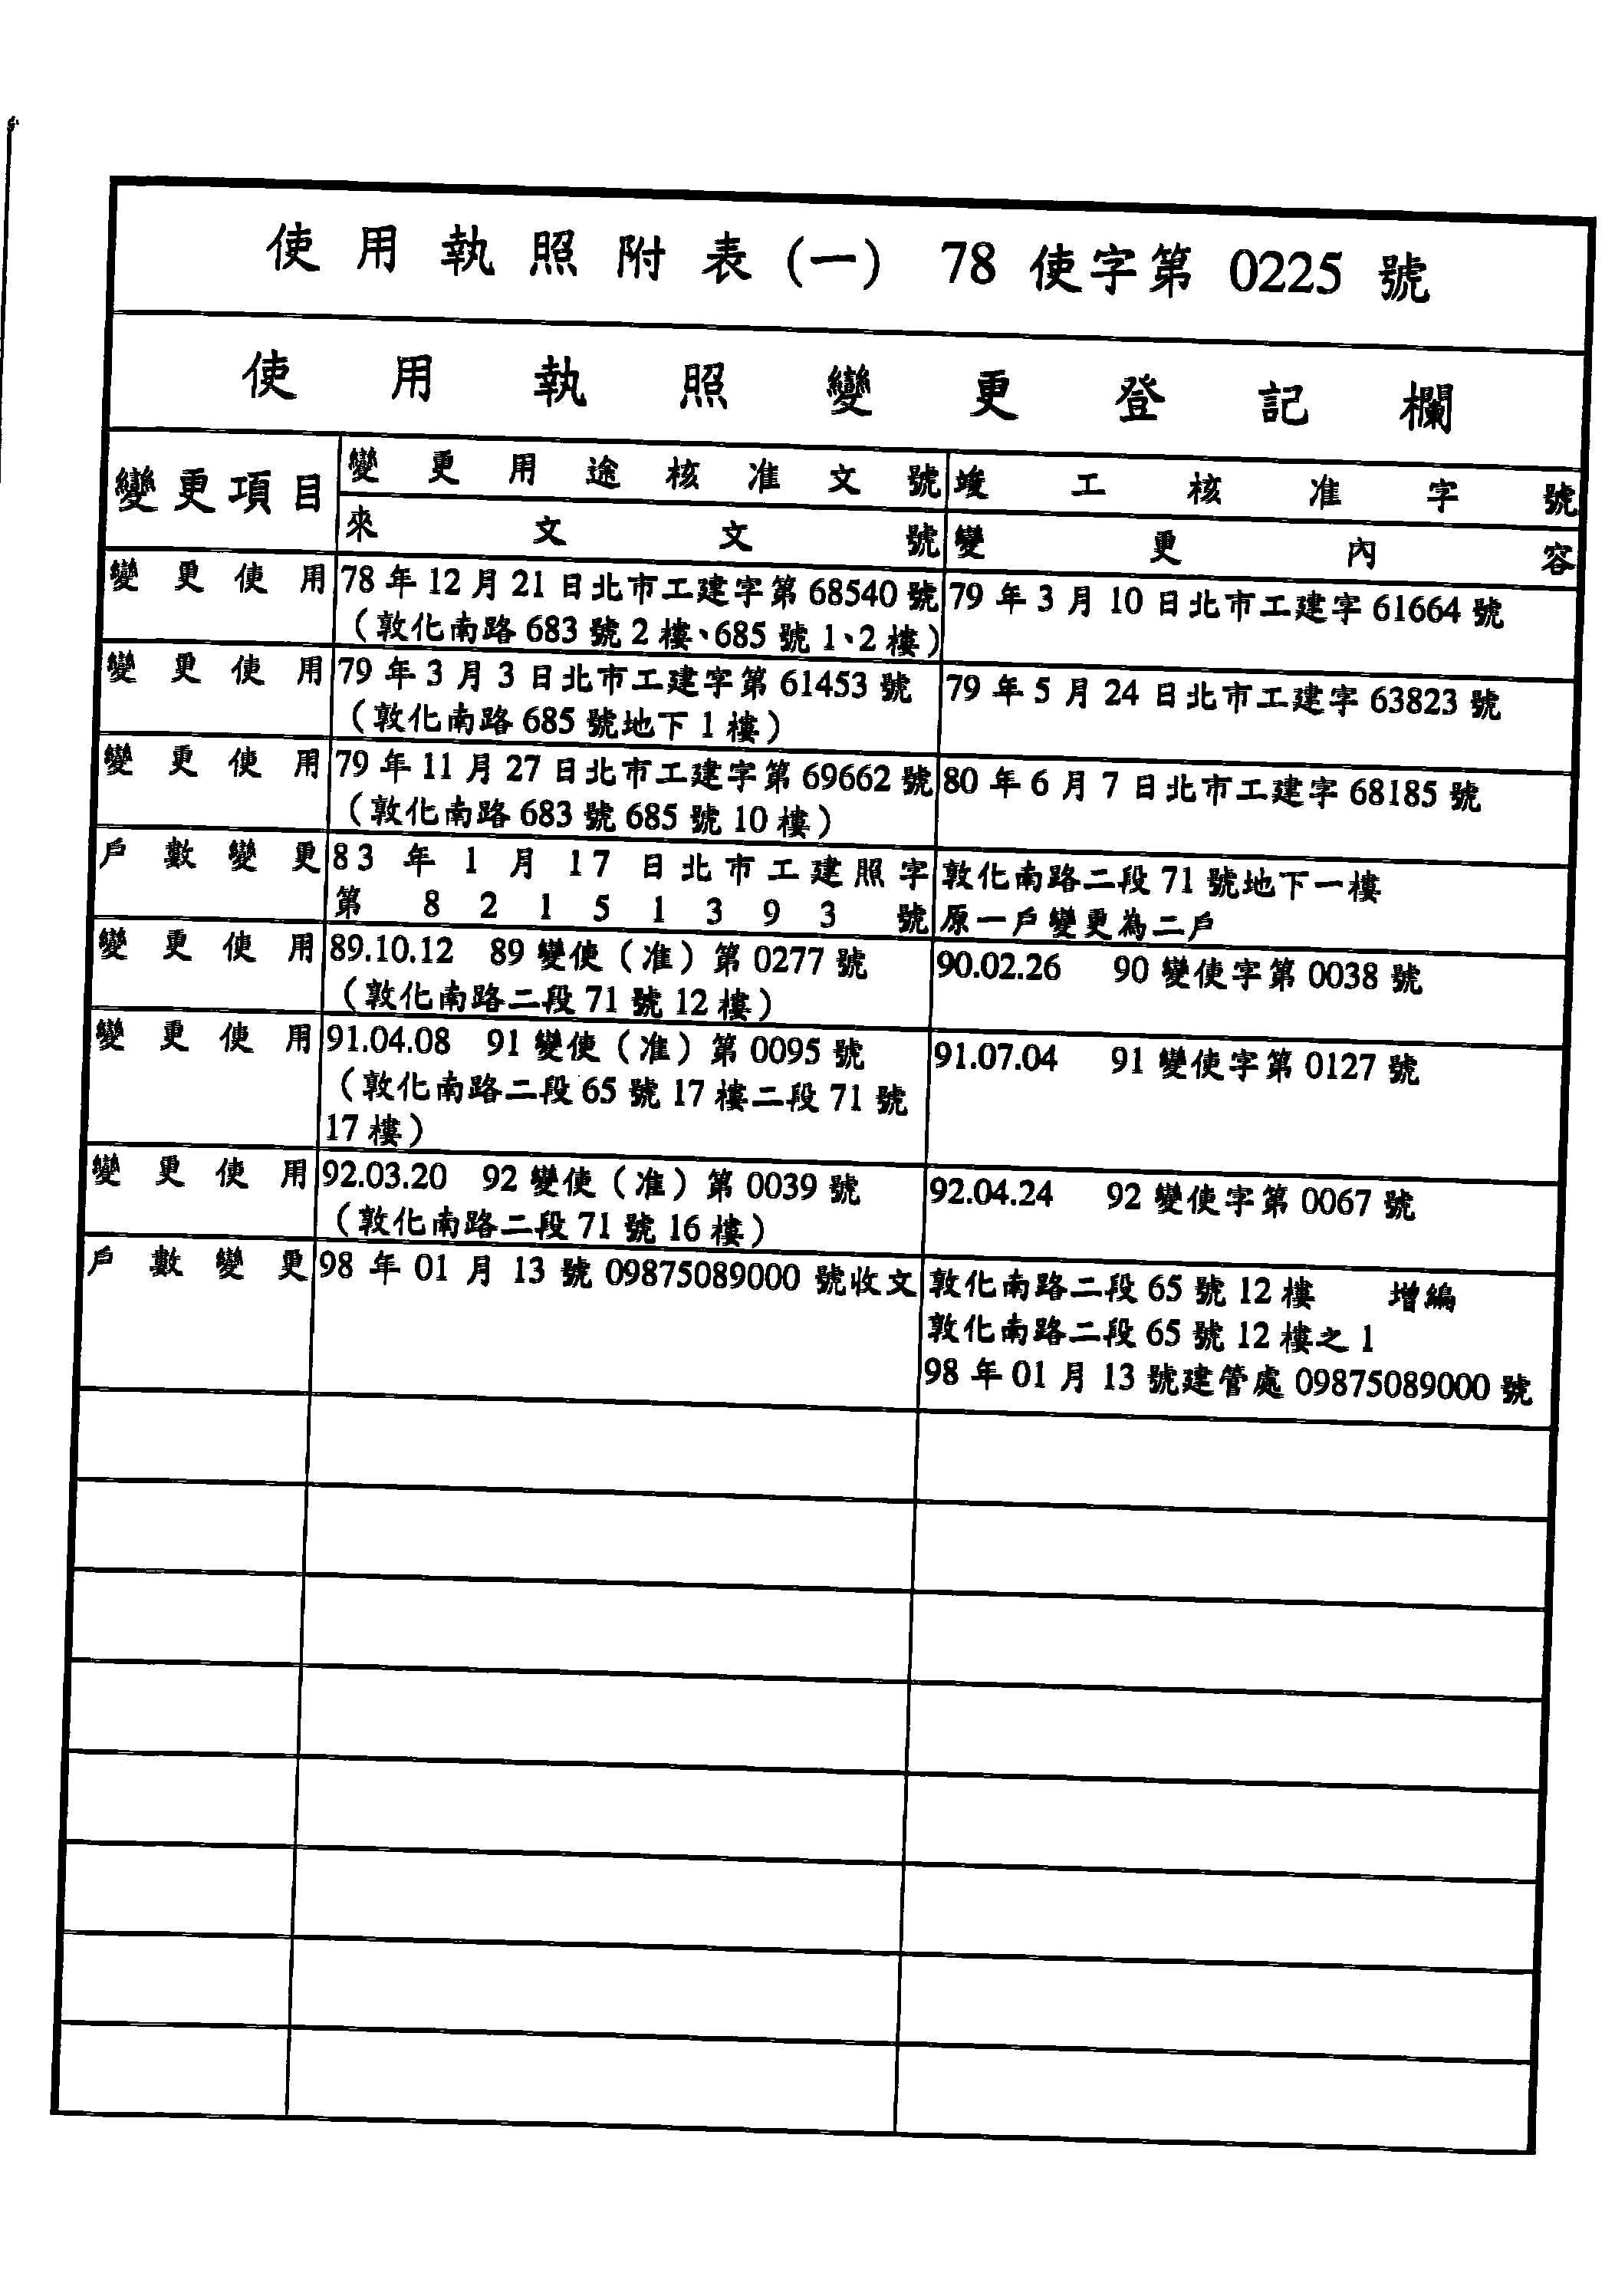 使用執照附表(一) 78 使字第 0225 號
使用執照變更登記欄
變更項目
變更用途核准文號 竣工核准字號
來文文號 變更內容
變更使用 78 年 12 月 21 日北市工建字第 68540 號 79 年 3 月 10 日北市工建字 61664 號
（敦化南路 683 號 2 樓、685 號 1、2 樓）
變更使用 79 年 3 月 3 日北市工建字第 61453 號 79 年 5 月 24 日北市工建字 63823 號
（敦化南路 685 號地下 1 樓）
變更使用 79 年 11 月 27 日北市工建字第 69662 號 80 年 6 月 7 日北市工建字 68185 號
（敦化南路 683 號 685 號 10 樓）
戶數變更 83 年 1 月 17 日北市工建照字 敦化南路二段 71 號地下一樓
第 82151393 號 原一戶變更為二戶
變更使用 89.10.12 89 變使（准）第 0277 號 90.02.26 90 變使字第 0038 號
（敦化南路二段 71 號 12 樓）
變更使用 91.04.08 91 變使（准）第 0095 號 91.07.04 91 變使字第 0127 號
（敦化南路二段 65 號 17 樓二段 71 號
17 樓）
變更使用 92.03.20 92 變使（准）第 0039 號 92.04.24 92 變使字第 0067 號
（敦化南路二段 71 號 16 樓）
戶數變更 98 年 01 月 13 號 09875089000 號收文 敦化南路二段 65 號 12 樓 增編
敦化南路二段 65 號 12 樓之 1
98 年 01 月 13 號建管處 09875089000 號